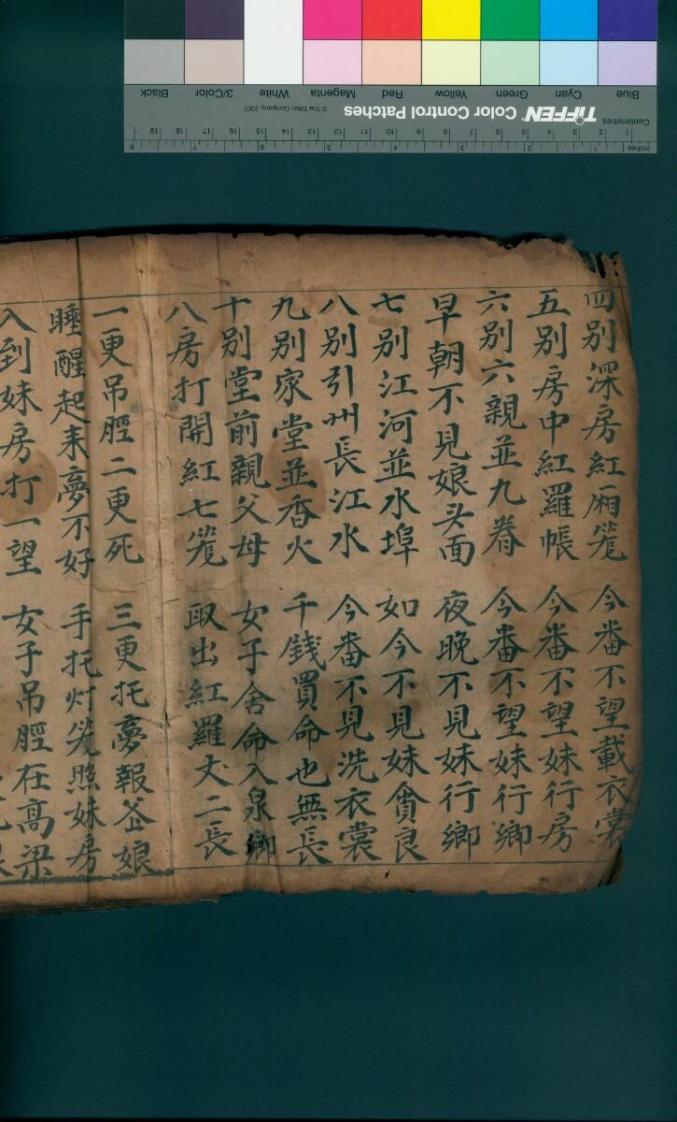 四別深房紅廂篭 今番不望載衣裳
五別房中紅羅帳 今番不望妹行房
六別六親並九眷 今番不望妹行鄉
早朝不見娘头面 夜晚不見妹行鄉
七別江河並水埠 如今不見妹食良
八別引州長江水 今番不見洗衣裳
九別家堂並香火 千錢買命也無長
十別堂前親父母 女子舍命入泉鄉
八房打開紅七篭 取出紅羅丈二長
一更吊脛二更死 三更托夢報爺娘
睡醒起来夢不好 手托灯篭照妹房
入到妹房打一望 女子吊脛在高梁
Blue Cyan Green Yellow Red Magenta White 3/Color Black
TIFFEN Color Control Patches © The Tiffen Company, 2007
Centimetres 1 2 3 4 5 6 7 8 9 10 11 12 13 14 15 16 17 18 19
Inches 1 2 3 4 5 6 7 8